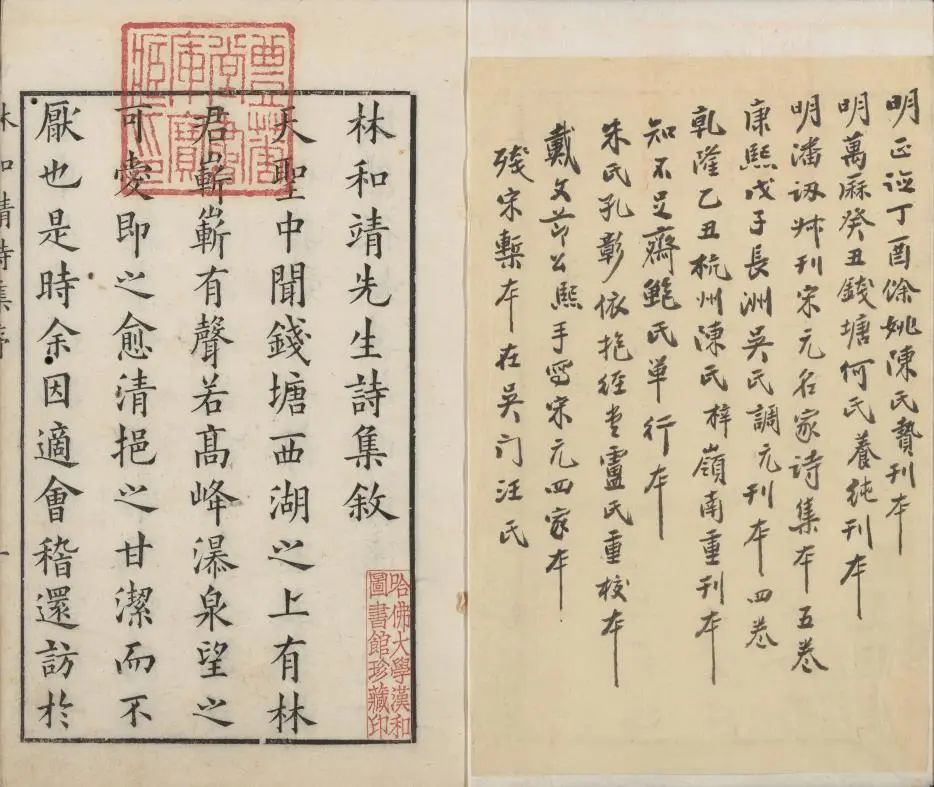 明正德丁酉餘姚陳氏贄刊本
明萬厤癸丑錢塘何氏養純刊本
明潘訒叔刊宋元名家诗集本五卷
康熙戊子長洲吳氏調元刊本四卷
乾隆乙丑杭州陳氏梓嶺南重刊本
知不足齋鮑氏单行本
朱氏孔彰依抱经堂盧氏重校本
戴文节公熙手写宋元四家本
殘宋槧本在吴门汪氏
林和靖先生詩集敘
天聖中聞錢塘西湖之上有林
君嶄嶄有聲若髙峰瀑泉望之
可愛即之愈清挹之甘潔而不
厭也是時余因適會稽還訪於
林和靖詩集序
一
哈佛大學漢和
圖書館珍藏印